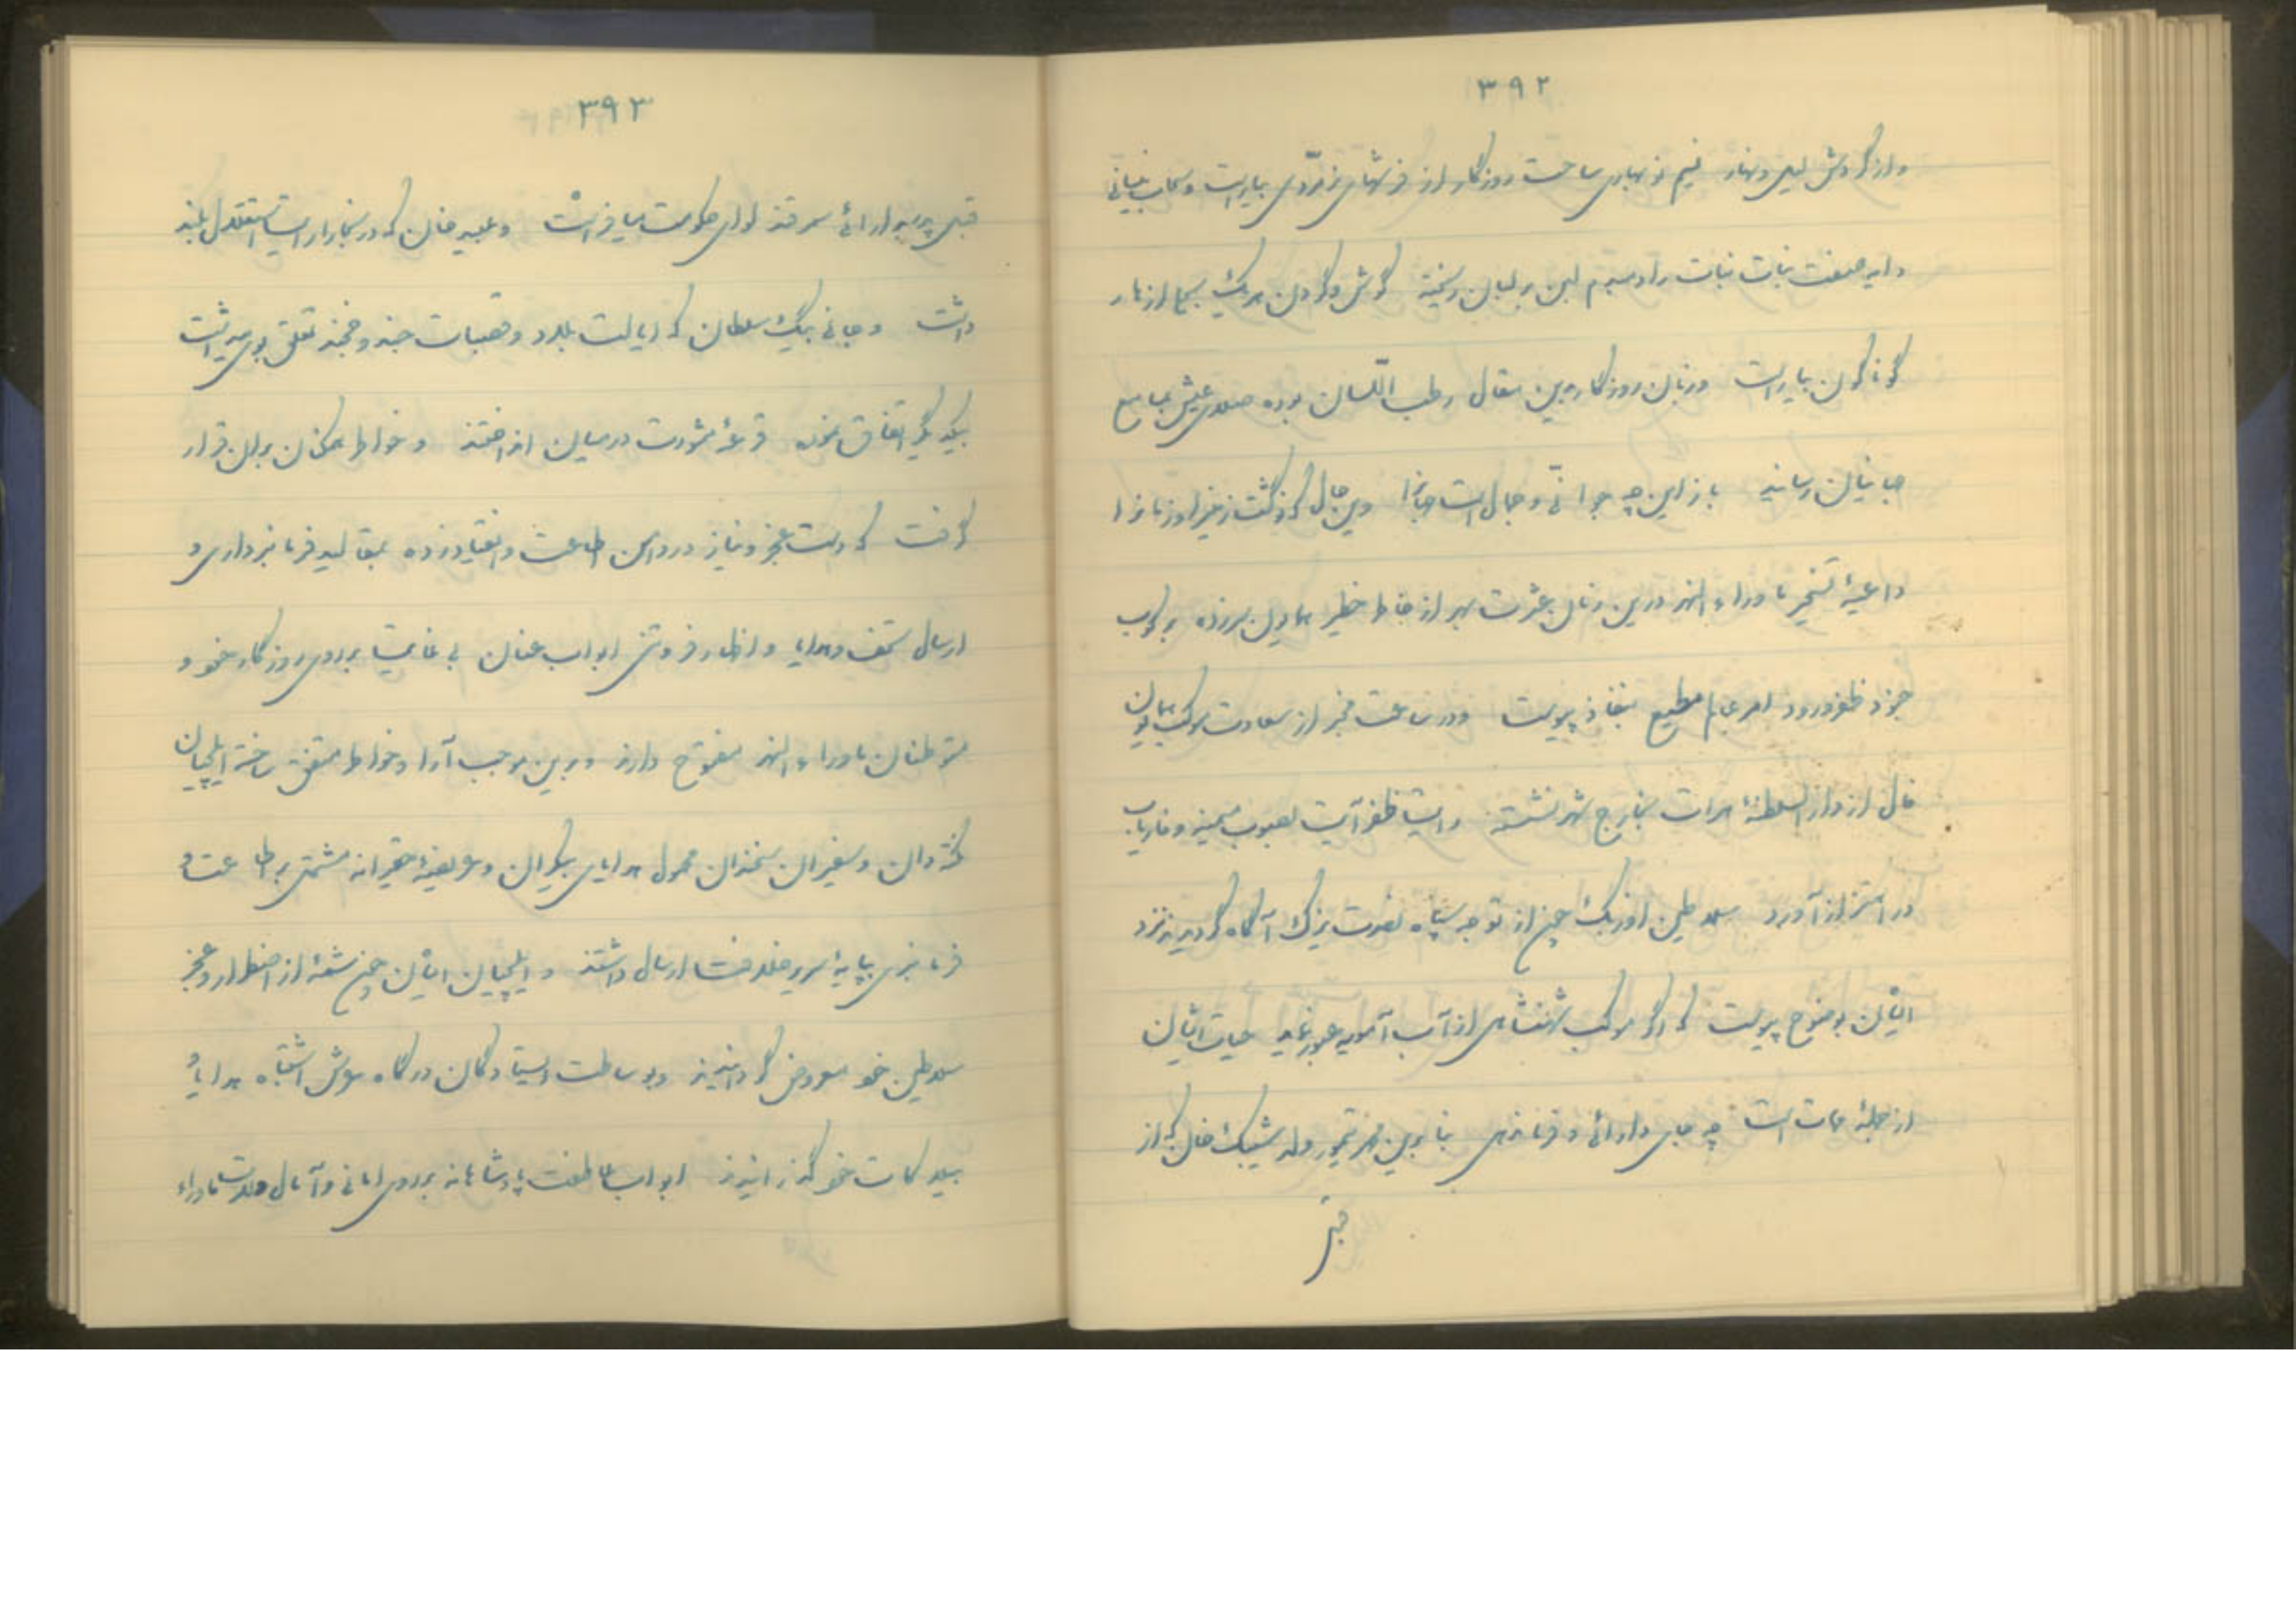 ۳۹۲
و از گردش لیل و نهار نسیم نوبهاری ساحت روزگار از فرشهای زمردی بیاراست و سحاب نیسانی
دایه صفت بنات نبات را دمبدم لبن بر لبان ریخته گوش و گردن هر یک بسحا ازهار
گوناگون بیاراست و زبان روزگار بدین مقال رطب اللّسان بوده صلای عیش بمجامع
جهانیان رسانید باز این چه جوانی و جمالست جهانرا وین حال که نو گشت زمین را و زمانرا
داعیهٔ تسخیر ماوراء النهر درین زمان عشرت بهر از خاطر خطیر همایون سر زده بر کوب
جنود ظفر ورود امر عالم مطیع بنفاذ پیوست و در ساعت مخبر از سعادت موکب همایون
فال از دار السلطنهٔ هرات بخارج شهر نشسته رایت ظفر آیت بصوب میمنه و فاریاب
در اهتزاز آورد سلاطین اوزبک چون از توجه سپاه نصرت یزک آگاه گردیدند نزد
ایشان بوضوح پیوست که اگر موکب شهنشاهی از آب آمویه عبور نماید حیات ایشان
از جملهٔ ممات است چه جای دارائی و فرماندهی بنابرین محمد تیمور ولد شیبک خان که از
قبل
۳۹۳
قبل پدر بدارائی سمرقند لوای حکومت میافراشت و عبید خان که در بخارا رایت استقلال بلند
داشت و جانی بیگ سلطان که ایالت بلاد و قصبات جند و خجند تعلق بوی میداشت
بیکدیگر اتفاق نموده قرعهٔ مشورت در میان انداختند و خواطر همکنان بر آن قرار
گرفت که دست عجز و نیاز در دامن اطاعت و انقیاد زده بمقالید فرمانبرداری و
ارسال تحف و هدایا و اظهار فروتنی ابواب عنایت بی غایت بر روی روزگار خود و
متوطنان ماوراء النهر مفتوح دارند و بدین موجب آرا و خواطر متفق ساخته ایلچیان
نکته دان و سفیران سخندان محمول هدایای بیکران و عریضهٔ حقیرانه مشتمل بر طاعت و
فرمانبری بپایهٔ سریر خلافت ارسال داشتند و ایلچیان ایشان چون شمهٔ از اضطرار و عجز
سلاطین خود معروض گردانیدند و بوساطت ایستادگان درگاه عرش اشتباه هدایا و
بیلاکات خود گذرانیدند ابواب عاطفت پادشاهانه بر روی امانی و آمال ولات ماوراء